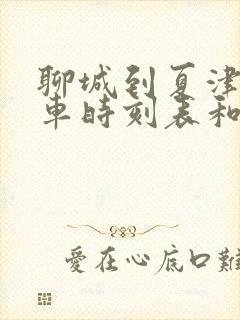 聊城到夏津
車時刻表和
愛在心底口難